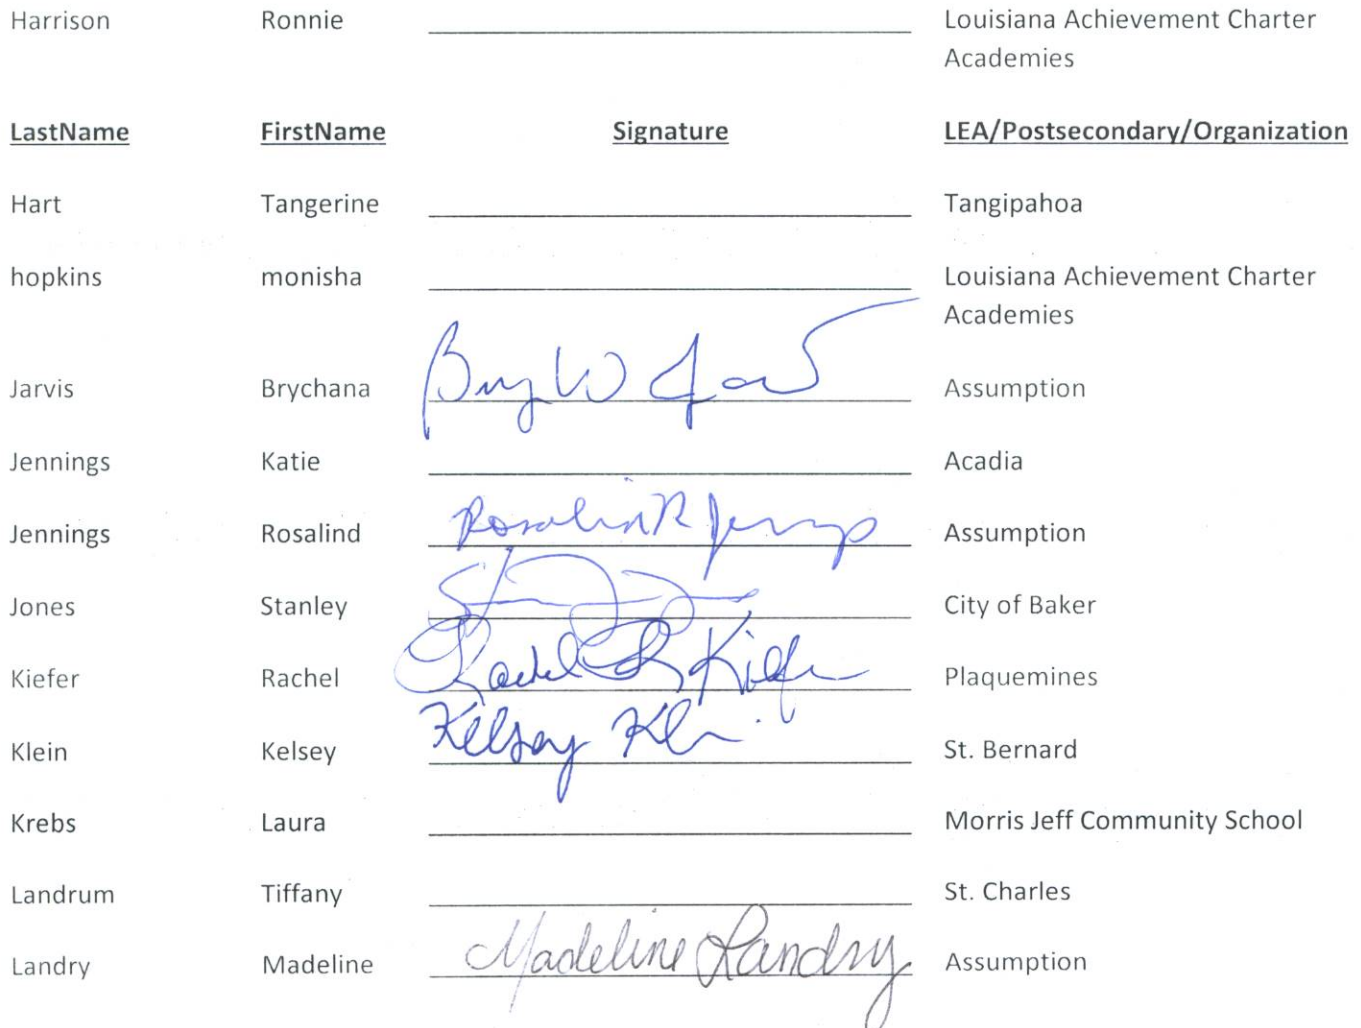 Harrison Ronnie Louisiana Achievement Charter
Academies
LastName FirstName Signature LEA/Postsecondary/Organization
Hart Tangerine Tangipahoa
hopkins monisha Louisiana Achievement Charter
Academies
Jarvis Brychana Assumption
Jennings Katie Acadia
Jennings Rosalind Assumption
Jones Stanley City of Baker
Kiefer Rachel Rachel R Kiefer Plaquemines
Klein Kelsey Kelsey St. Bernard
Krebs Laura Morris Jeff Community School
Landrum Tiffany St. Charles
Landry Madeline Madeline Landry Assumption